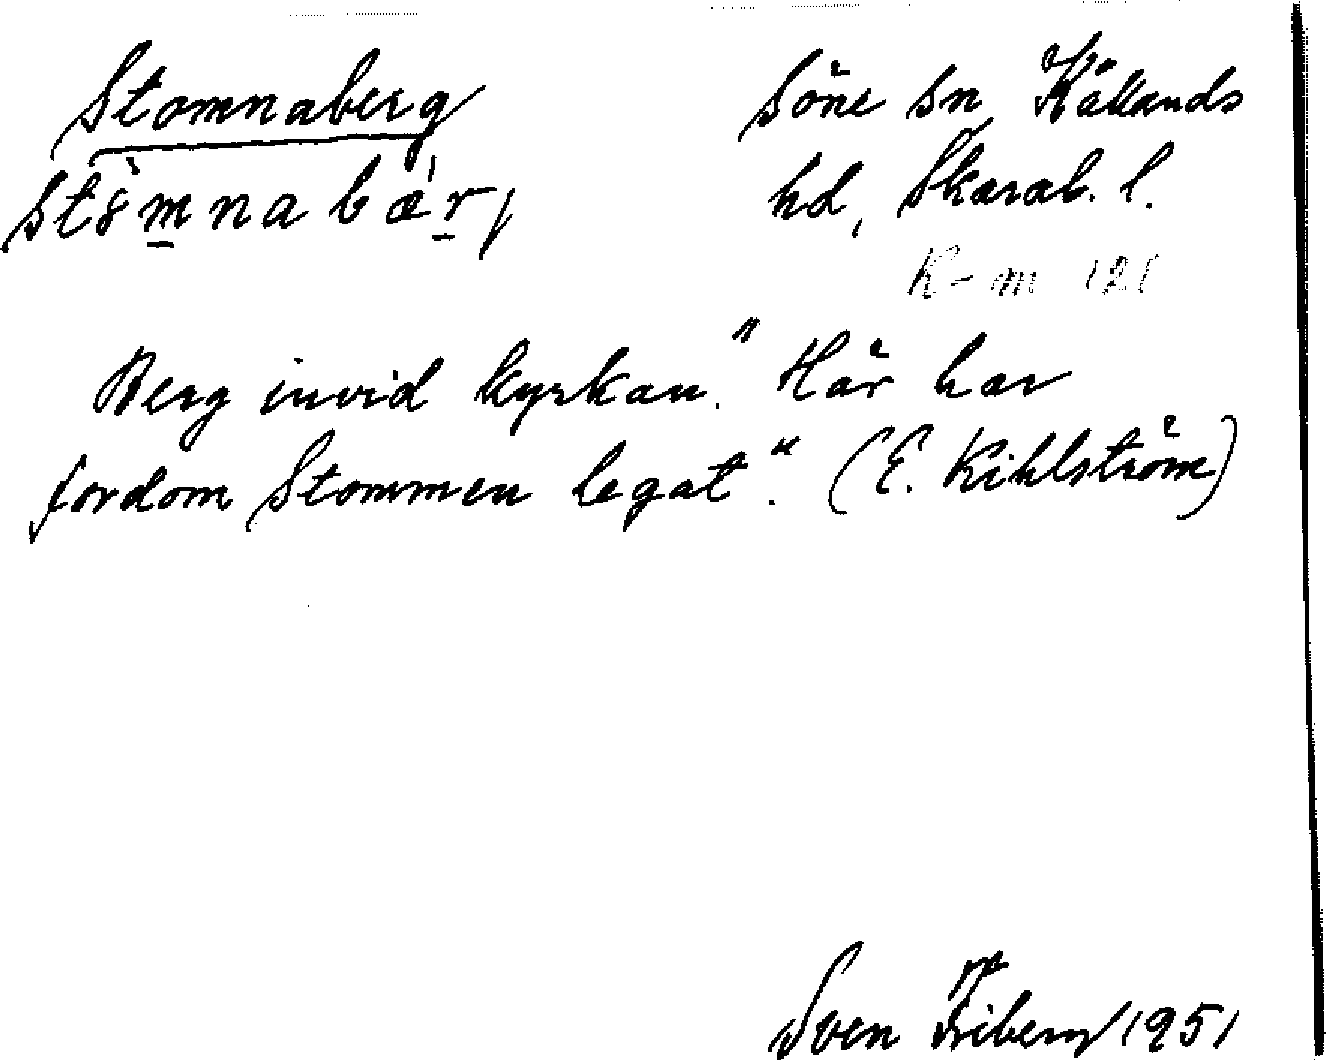 Stomnaberg
Söne sn, Kållands
hd, Skarab. l.
K-m 121
Berg invid kyrkan. "Här har
fordom Stommen legat". (E. Kihlström)
Sven Friberg 1951